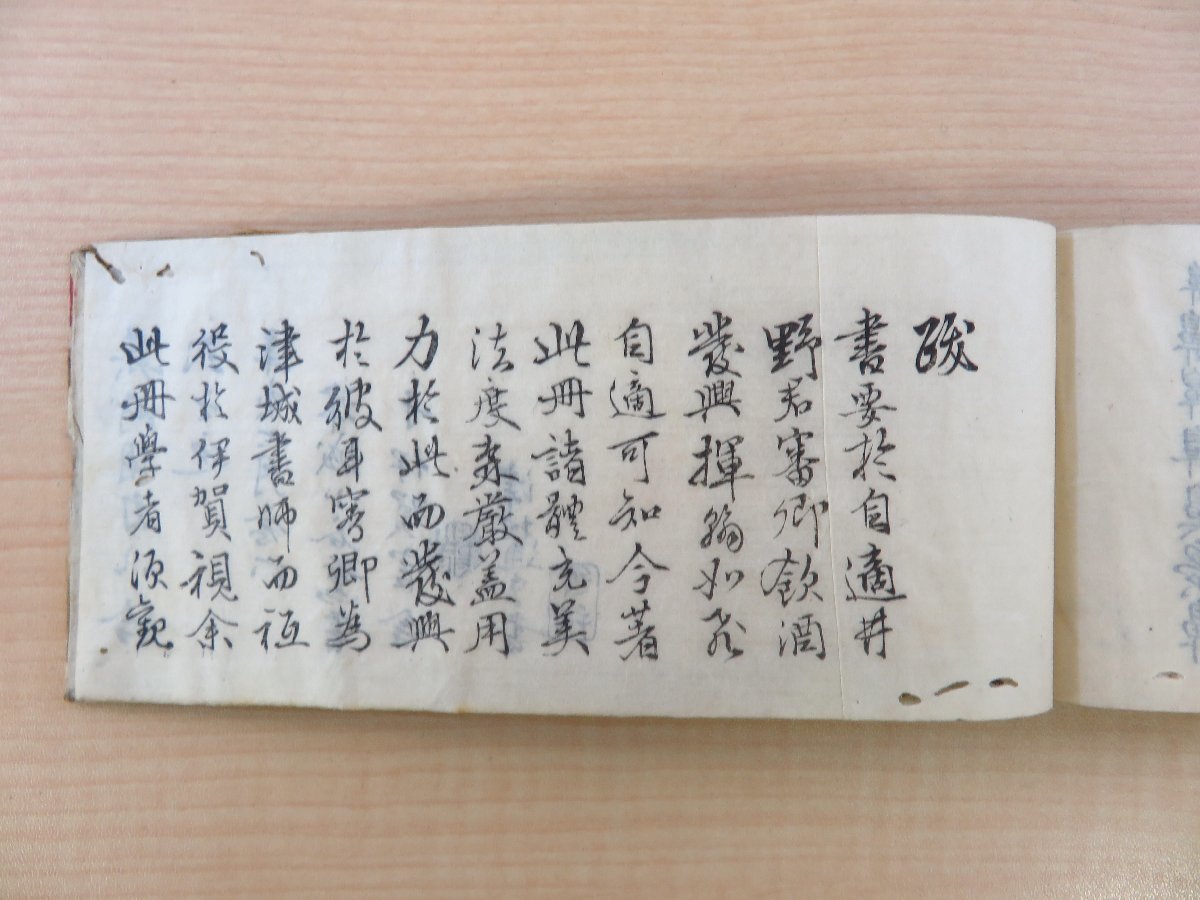 跋
書要於自適井
野君審卿飲酒
發興揮翰如飛
自適可知今著
此冊諸體充美
法度森嚴盖用
力於此而發興
於彼耳審卿為
津城書師而祗
役於伊賀視余
此冊學者須觀